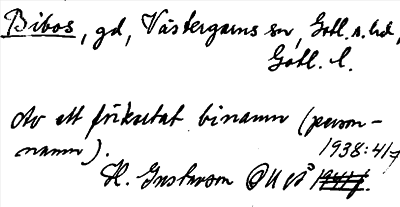 Bibos, gd, Västergarns sn, Gotl. s. hd,
Gotl. l.
Av ett förkortat binamn (person-
namn).
1938:417
H. Gustavson OUÅ